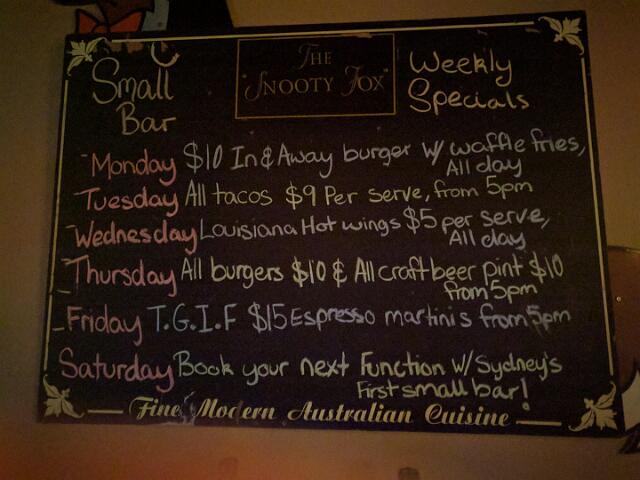 Small
Bar
THE
"SNOOTY FOX"
Weekly
Specials
Monday $10 In & Away burger w/ waffle fries,
All day
Tuesday All tacos $9 Per serve, from 5pm
Wednesday Louisiana Hot wings $5 per serve,
All day
Thursday All burgers $10 & All craft beer pint $10
from 5pm
Friday T.G.I.F $15 Espresso martinis from 5pm
Saturday Book your next Function w/ Sydney's
First small bar!
Fine Modern Australian Cuisine